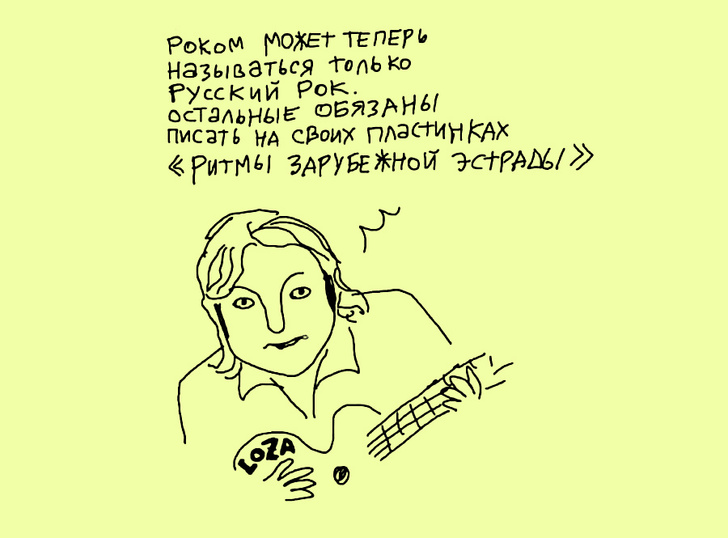 Роком может теперь
называться только
Русский Рок.
остальные обязаны
писать на своих пластинках
«Ритмы зарубежной эстрады»
LOZA